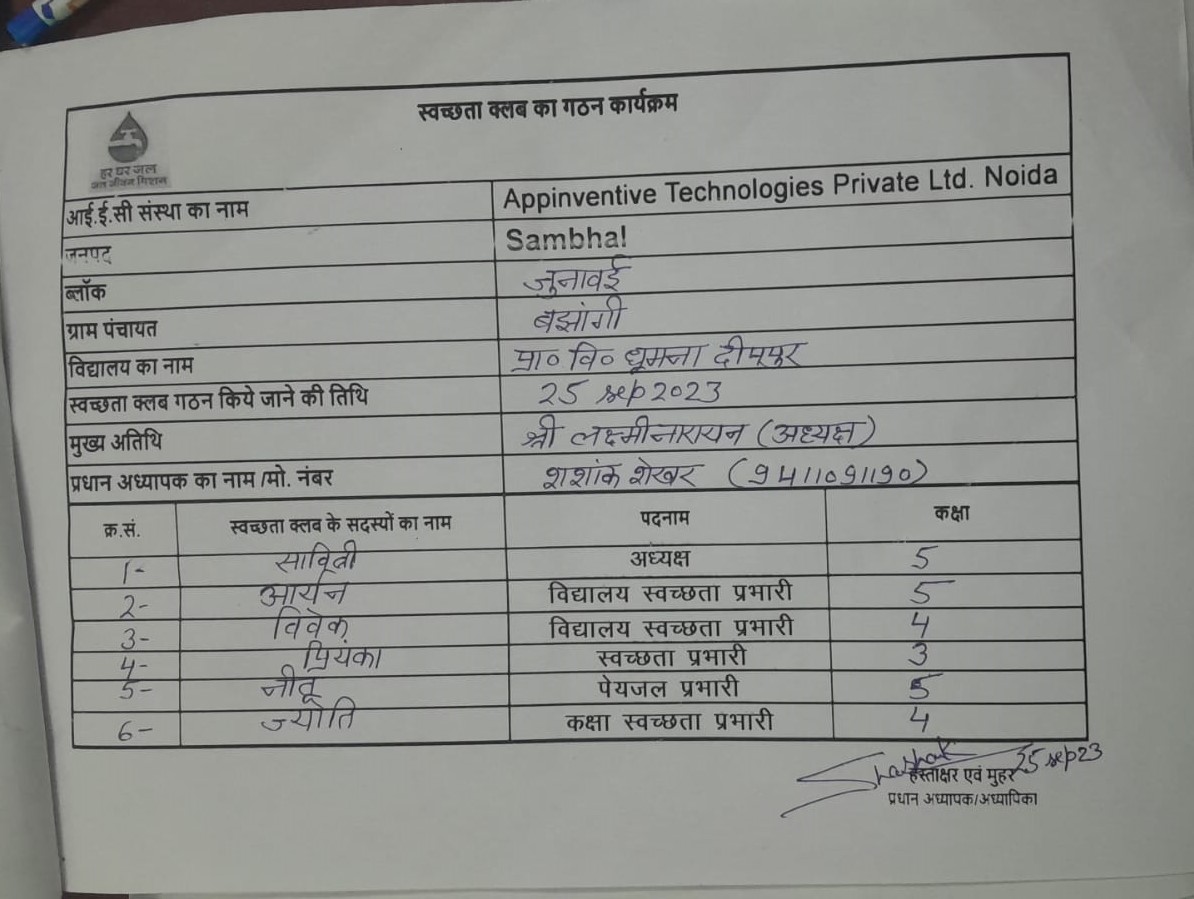 स्वच्छता क्लब का गठन कार्यक्रम
हर घर जल
जल जीवन मिशन
आई.ई.सी संस्था का नाम Appinventive Technologies Private Ltd. Noida
जनपद Sambhal
ब्लॉक जुनावई
ग्राम पंचायत बझांगी
विद्यालय का नाम प्रा० वि० धूमना दीपपुर
स्वच्छता क्लब गठन किये जाने की तिथि 25 sep 2023
मुख्य अतिथि श्री लक्ष्मीनारायन (अध्यक्ष)
प्रधान अध्यापक का नाम /मो. नंबर शशांक शेखर (9411091190)
क्र.सं. स्वच्छता क्लब के सदस्यों का नाम पदनाम कक्षा
1- सावित्री अध्यक्ष 5
2- आर्यन विद्यालय स्वच्छता प्रभारी 5
3- विवेक विद्यालय स्वच्छता प्रभारी 4
4- प्रियंका स्वच्छता प्रभारी 3
5- नीतू पेयजल प्रभारी 5
6- ज्योति कक्षा स्वच्छता प्रभारी 4
Shashak 25 sep 23
हस्ताक्षर एवं मुहर
प्रधान अध्यापक/अध्यापिका